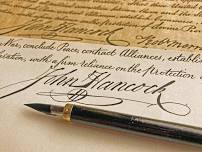 John Hancock
War, conclude Peace, contract Alliances, establis
with a firm reliance on the protection
John Hancock